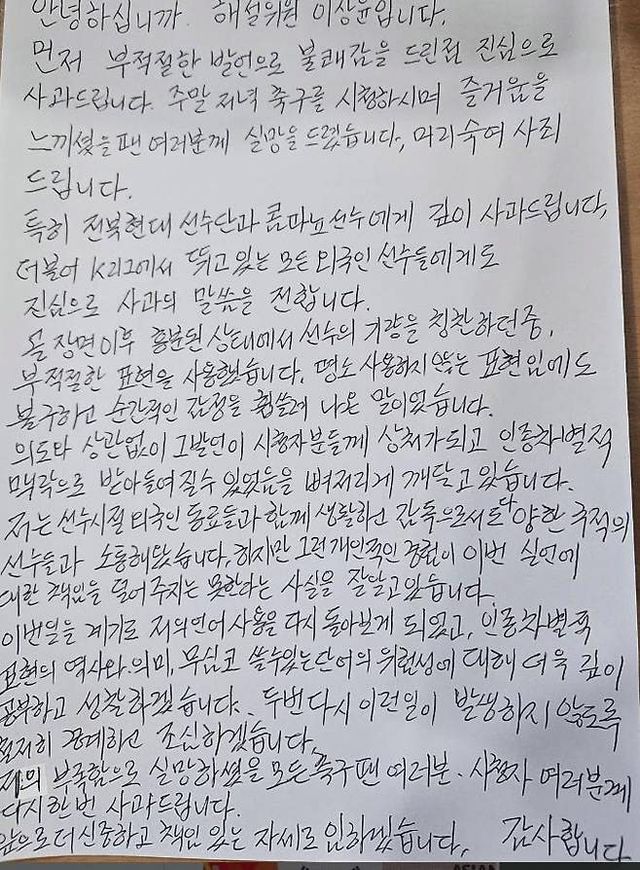 안녕하십니까. 해설위원 이상윤입니다.
먼저 부적절한 발언으로 불쾌감을 드린점 진심으로
사과드립니다. 주말 저녁 축구를 시청하시며 즐거움을
느끼셨을 팬 여러분께 실망을 드렸습니다, 머리숙여 사죄
드립니다.
특히 전북현대 선수단과 콤파뇨 선수에게 깊이 사과드립니다,
더불어 K리그에서 뛰고 있는 모든 외국인 선수들에게도
진심으로 사과의 말씀을 전합니다.
골 장면이후 흥분된 상태에서 선수의 기량을 칭찬하던 중,
부적절한 표현을 사용했습니다, 평소 사용하지 않는 표현임에도
불구하고 순간적인 감정을 휩쓸려 나온 말이었습니다.
의도와 상관없이 그발언이 시청자분들께 상처가되고 인종차별적
맥락으로 받아들여 질수 있었음을 뼈저리게 깨닫고 있습니다.
저는 선수시절 외국인 동료들과 함께 생활하고 감독으로서도 다양한 국적의
선수들과 소통해왔습니다, 하지만 그런 개인적인 경험이 이번 실언에
대한 책임을 덜어주지는 못한다는 사실을 잘알고 있습니다.
이번일을 계기로 저의언어 사용을 다시 돌아보게 되었고, 인종차별적
표현의 역사와 의미, 무심코 쓸수있는 단어의 위험성에 대해 더욱 깊이
공부하고 성찰하겠습니다. 두번다시 이런일이 발생하지 않도록
철저히 경계하고 조심하겠습니다,
저의 부족함으로 실망하셨을 모든 축구 팬 여러분. 시청자 여러분께
다시한번 사과드립니다.
앞으로 더 신중하고 책임 있는 자세로 임하겠습니다, 감사합니다